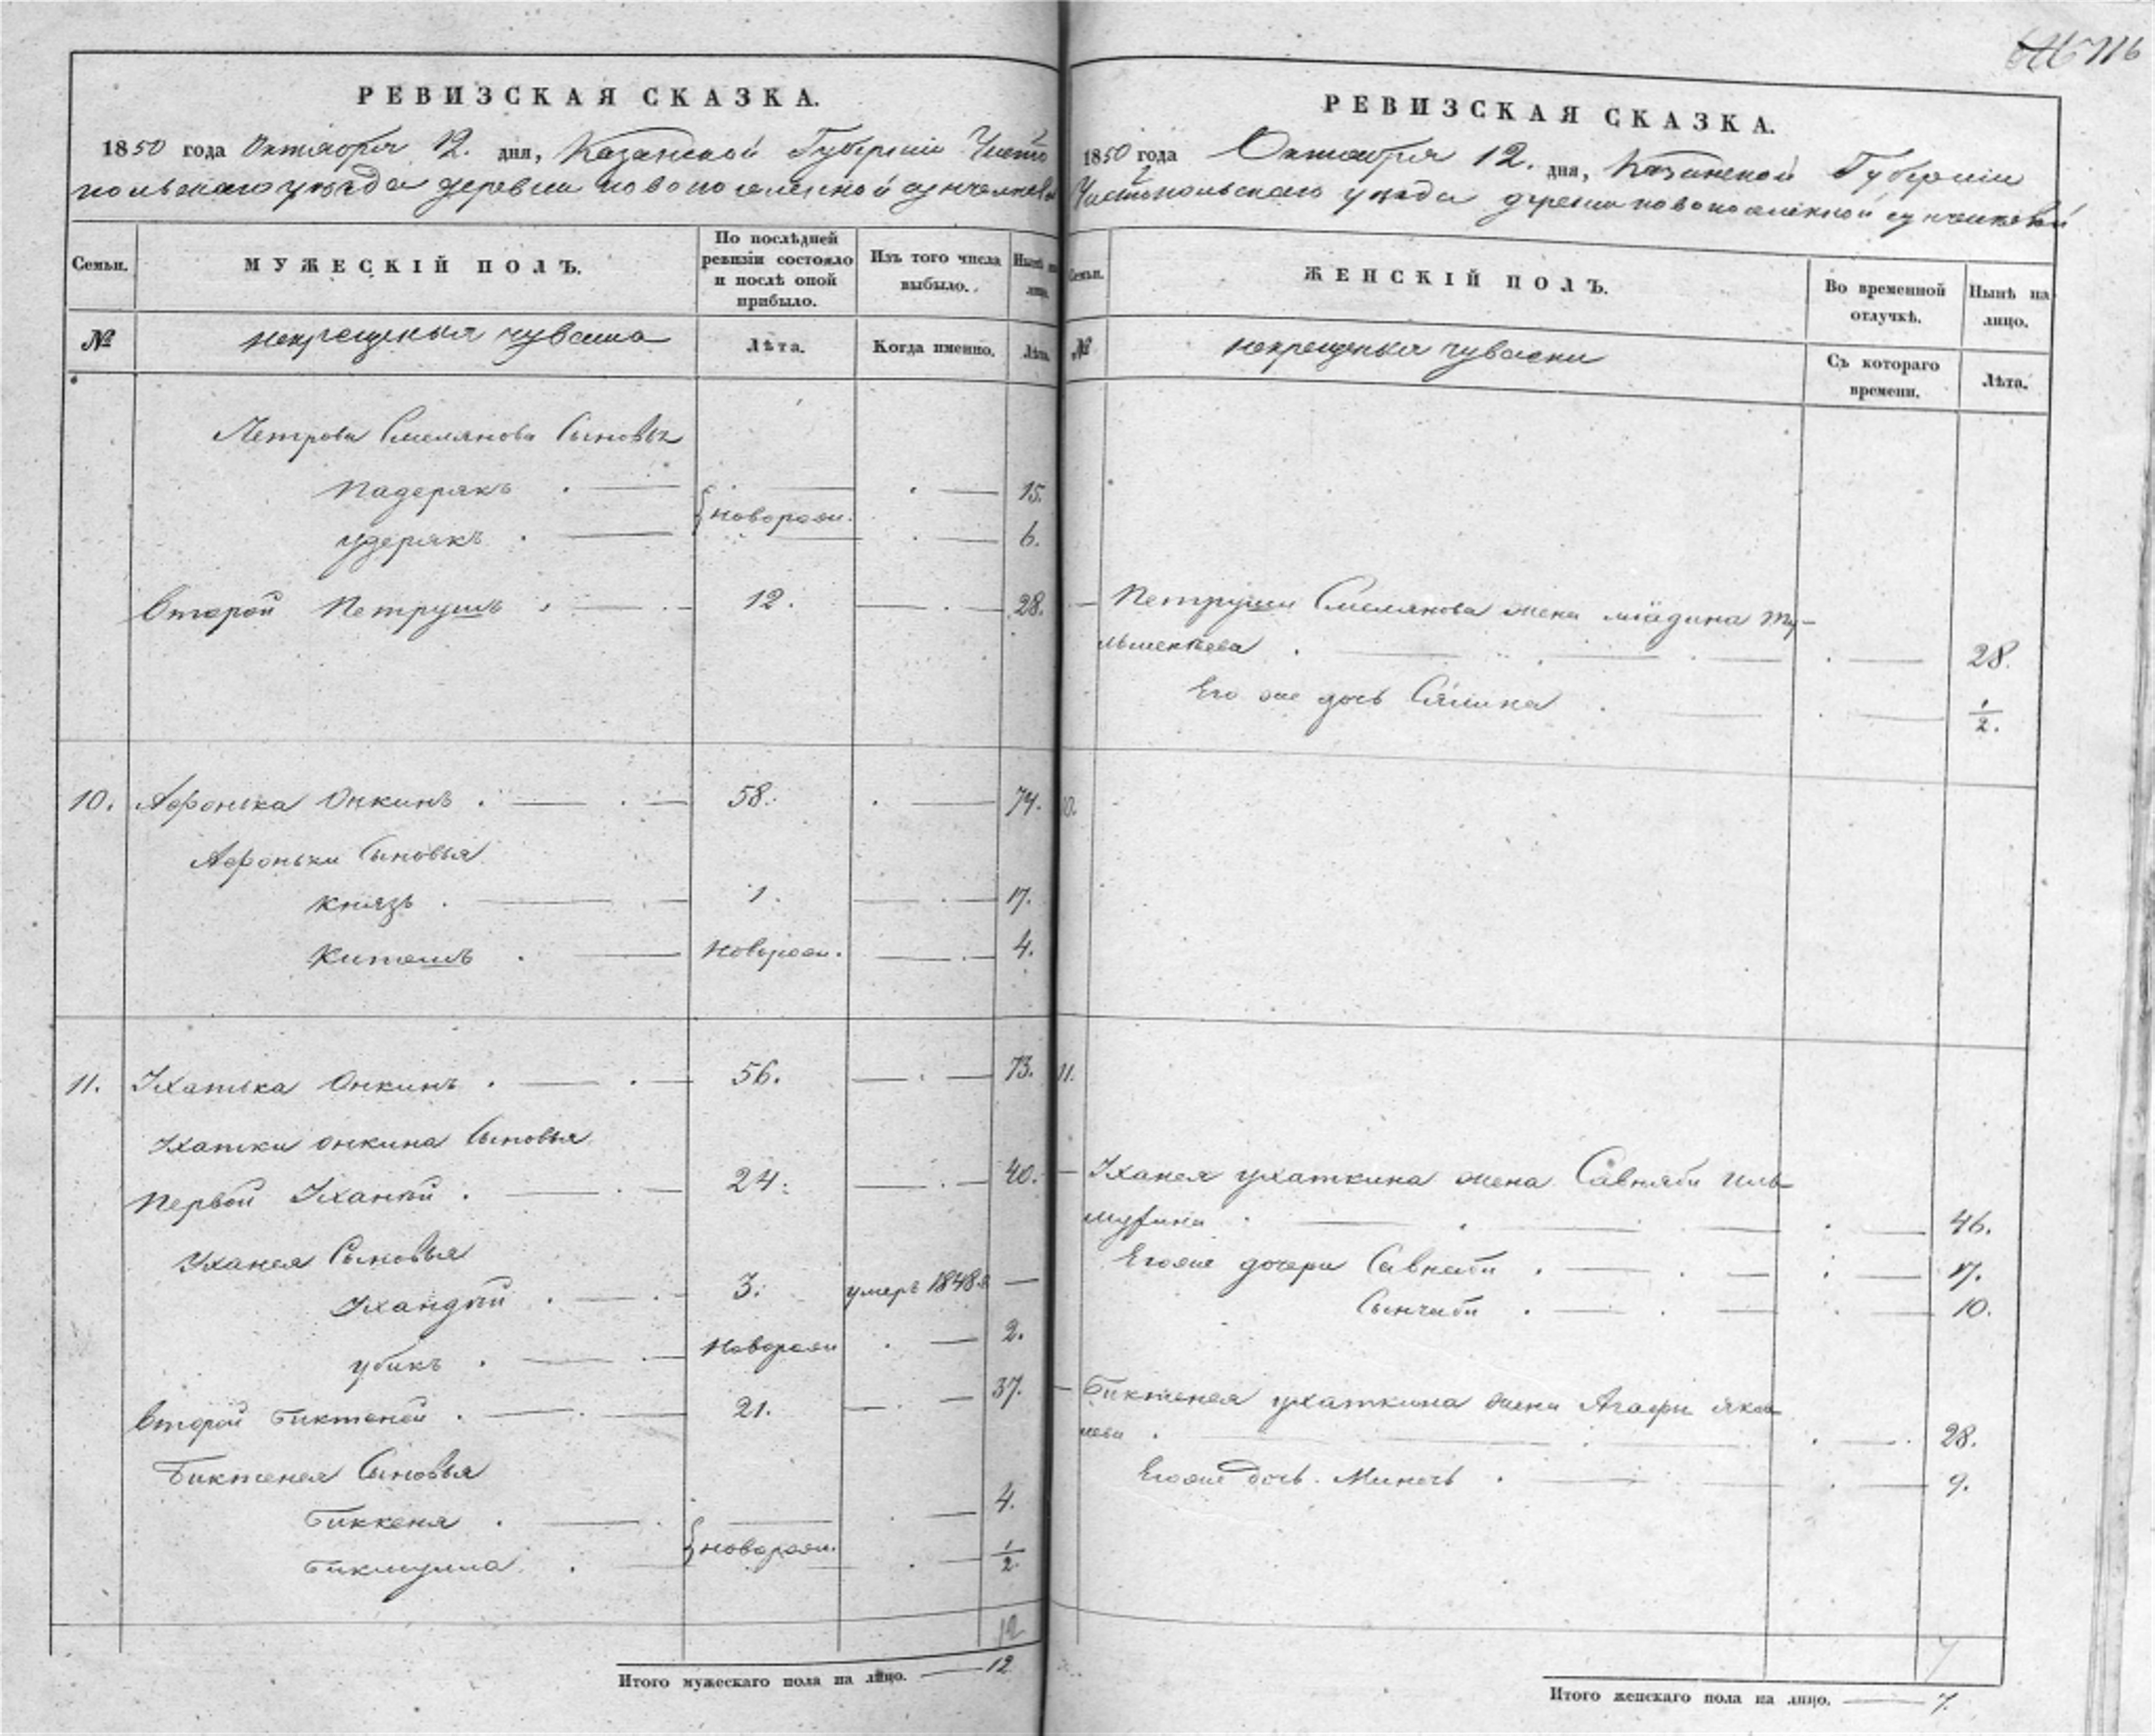 716
РЕВИЗСКАЯ СКАЗКА.
1850 года Октября 12. дня, Казанской Губернии Чисто
польскаго уѣзда деревни новопоселенной
Семьи.
МУЖЕСКІЙ ПОЛЪ.
По послѣдней ревизіи состояло и послѣ оной прибыло.
Изъ того числа выбыло.
Нынѣ на лицо.
№
некрещеныя чуваша
Лѣта.
Когда именно.
Лѣта.
Петрова Смелянова Сыновья
Падерякъ . — — . — 15.
{новорожд.
Удерякъ . — — . — 6.
Второй Петрушъ . — . 12. — . — 28.
10. Афонька Онкинъ . — . — 58. . — 74.
Афоньки Сыновья
Князь . — — 1. — . — 17.
Китешъ . — Новорож. — . — 4.
11. Ухатька Онкинъ . — . — 56. — . — 73.
Ухатки Онкина Сыновья
Первой Уханѣй . — . — 24. — . — 40.
Уханея Сыновья
Ухандѣй . — . 3. умеръ 1848 —
Убикъ . — . — Новорож . — 2.
Второй Биктеней . — . — 21. — . — 37.
Биктенея Сыновья
Биккеня . — . — . — 4.
{новорож.
Бикмурза . — . — 1/2.
12
Итого мужескаго пола на лицо. — 12
РЕВИЗСКАЯ СКАЗКА.
1850 года Октября 12. дня, Казанской Губернии
Чистопольскаго уѣзда деревни новопоселенной
Семьи.
ЖЕНСКІЙ ПОЛЪ.
Во временной отлучкѣ.
Нынѣ на лицо.
№
некрещеныя чуваски
Съ котораго времени.
Лѣта.
— Петруши Смелянова жена Мадина Ту-
льментеева . — . — . — . — 28.
Его же дочь Сялина . — . — 1/2.
10.
11.
— Уханея Ухаткина жена Савняби Иль
мурзина . — . — . — . — 46.
Егоже дочери Савнеби . — . — . — 17.
Сынчиби . — . — . — 10.
— Биктенея Ухаткина жена Агафи Яко
лева . — . — . — . 28.
Егоже дочь Минечь . — . — . — 9.
7
Итого женскаго пола на лицо. — 7.